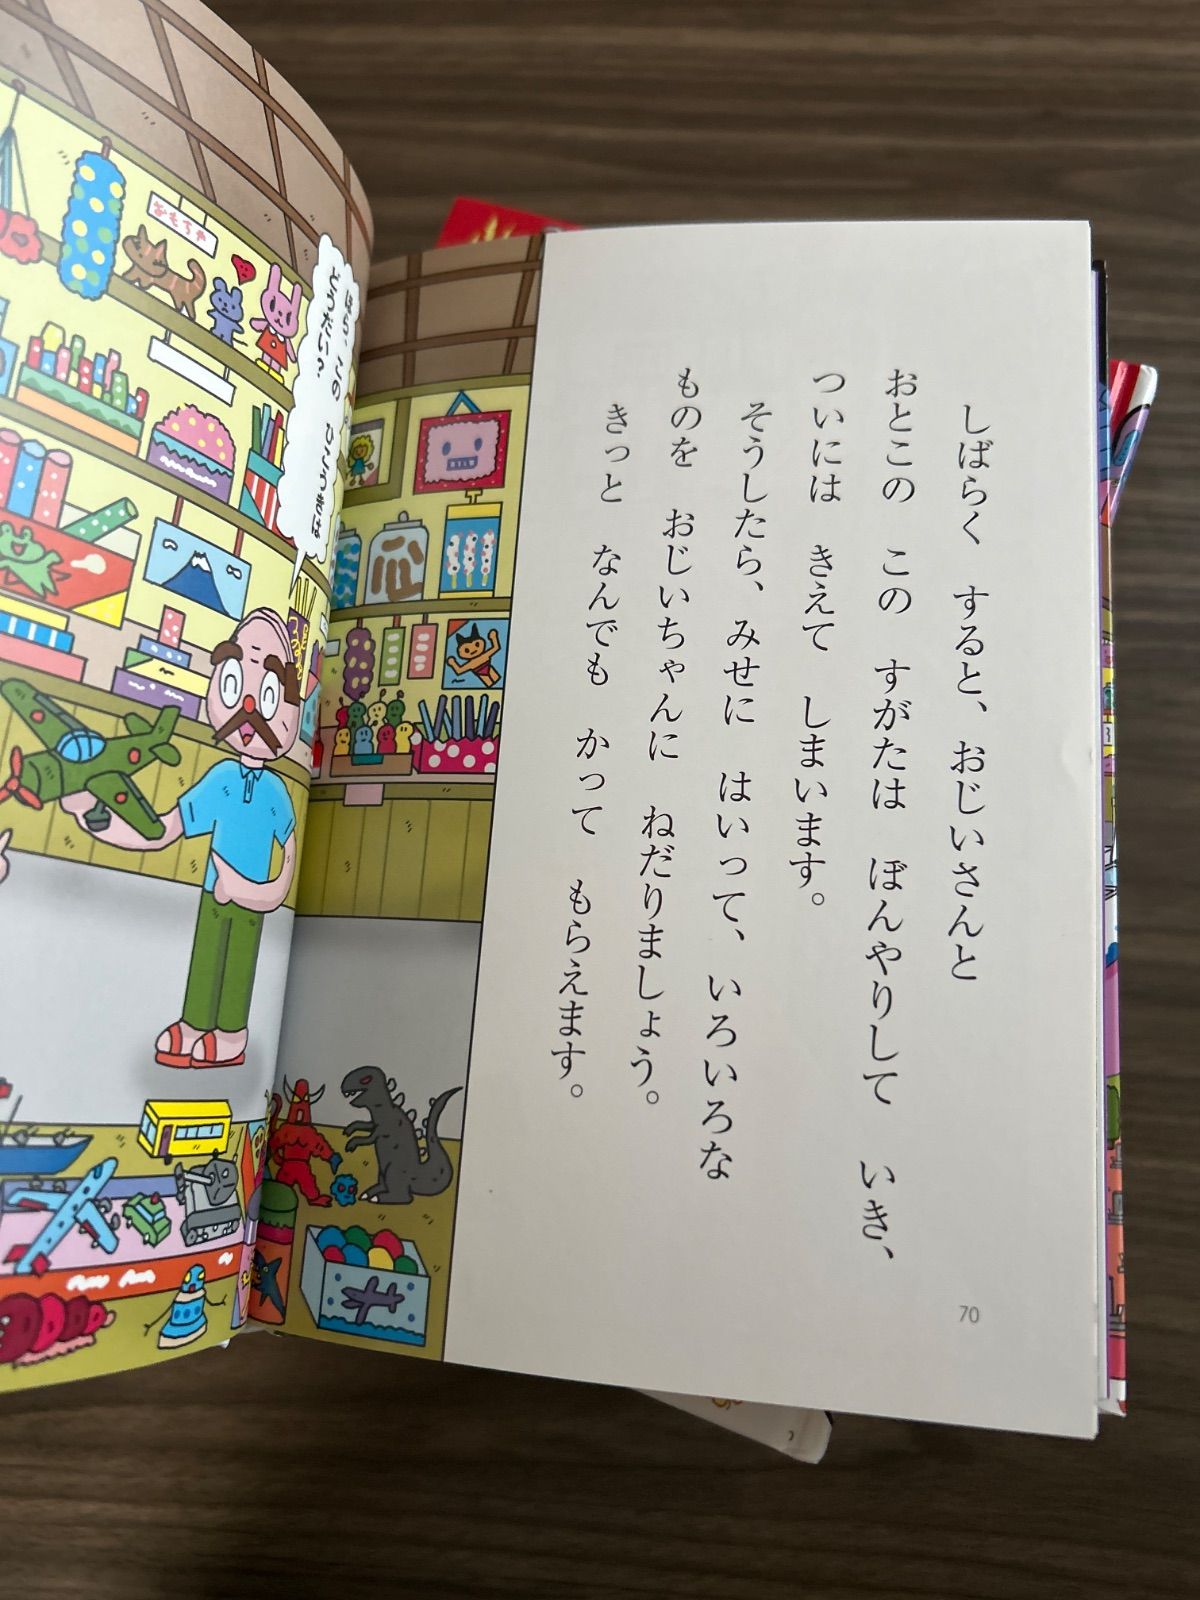 しばらく　すると、おじいさんと
おとこの　この　すがたは　ぼんやりして　いき、
ついには　きえて　しまいます。
そうしたら、みせに　はいって、いろいろな
ものを　おじいちゃんに　ねだりましょう。
きっと　なんでも　かって　もらえます。
70
おもちゃ
ほら、この　ひこうきは
どうだい？